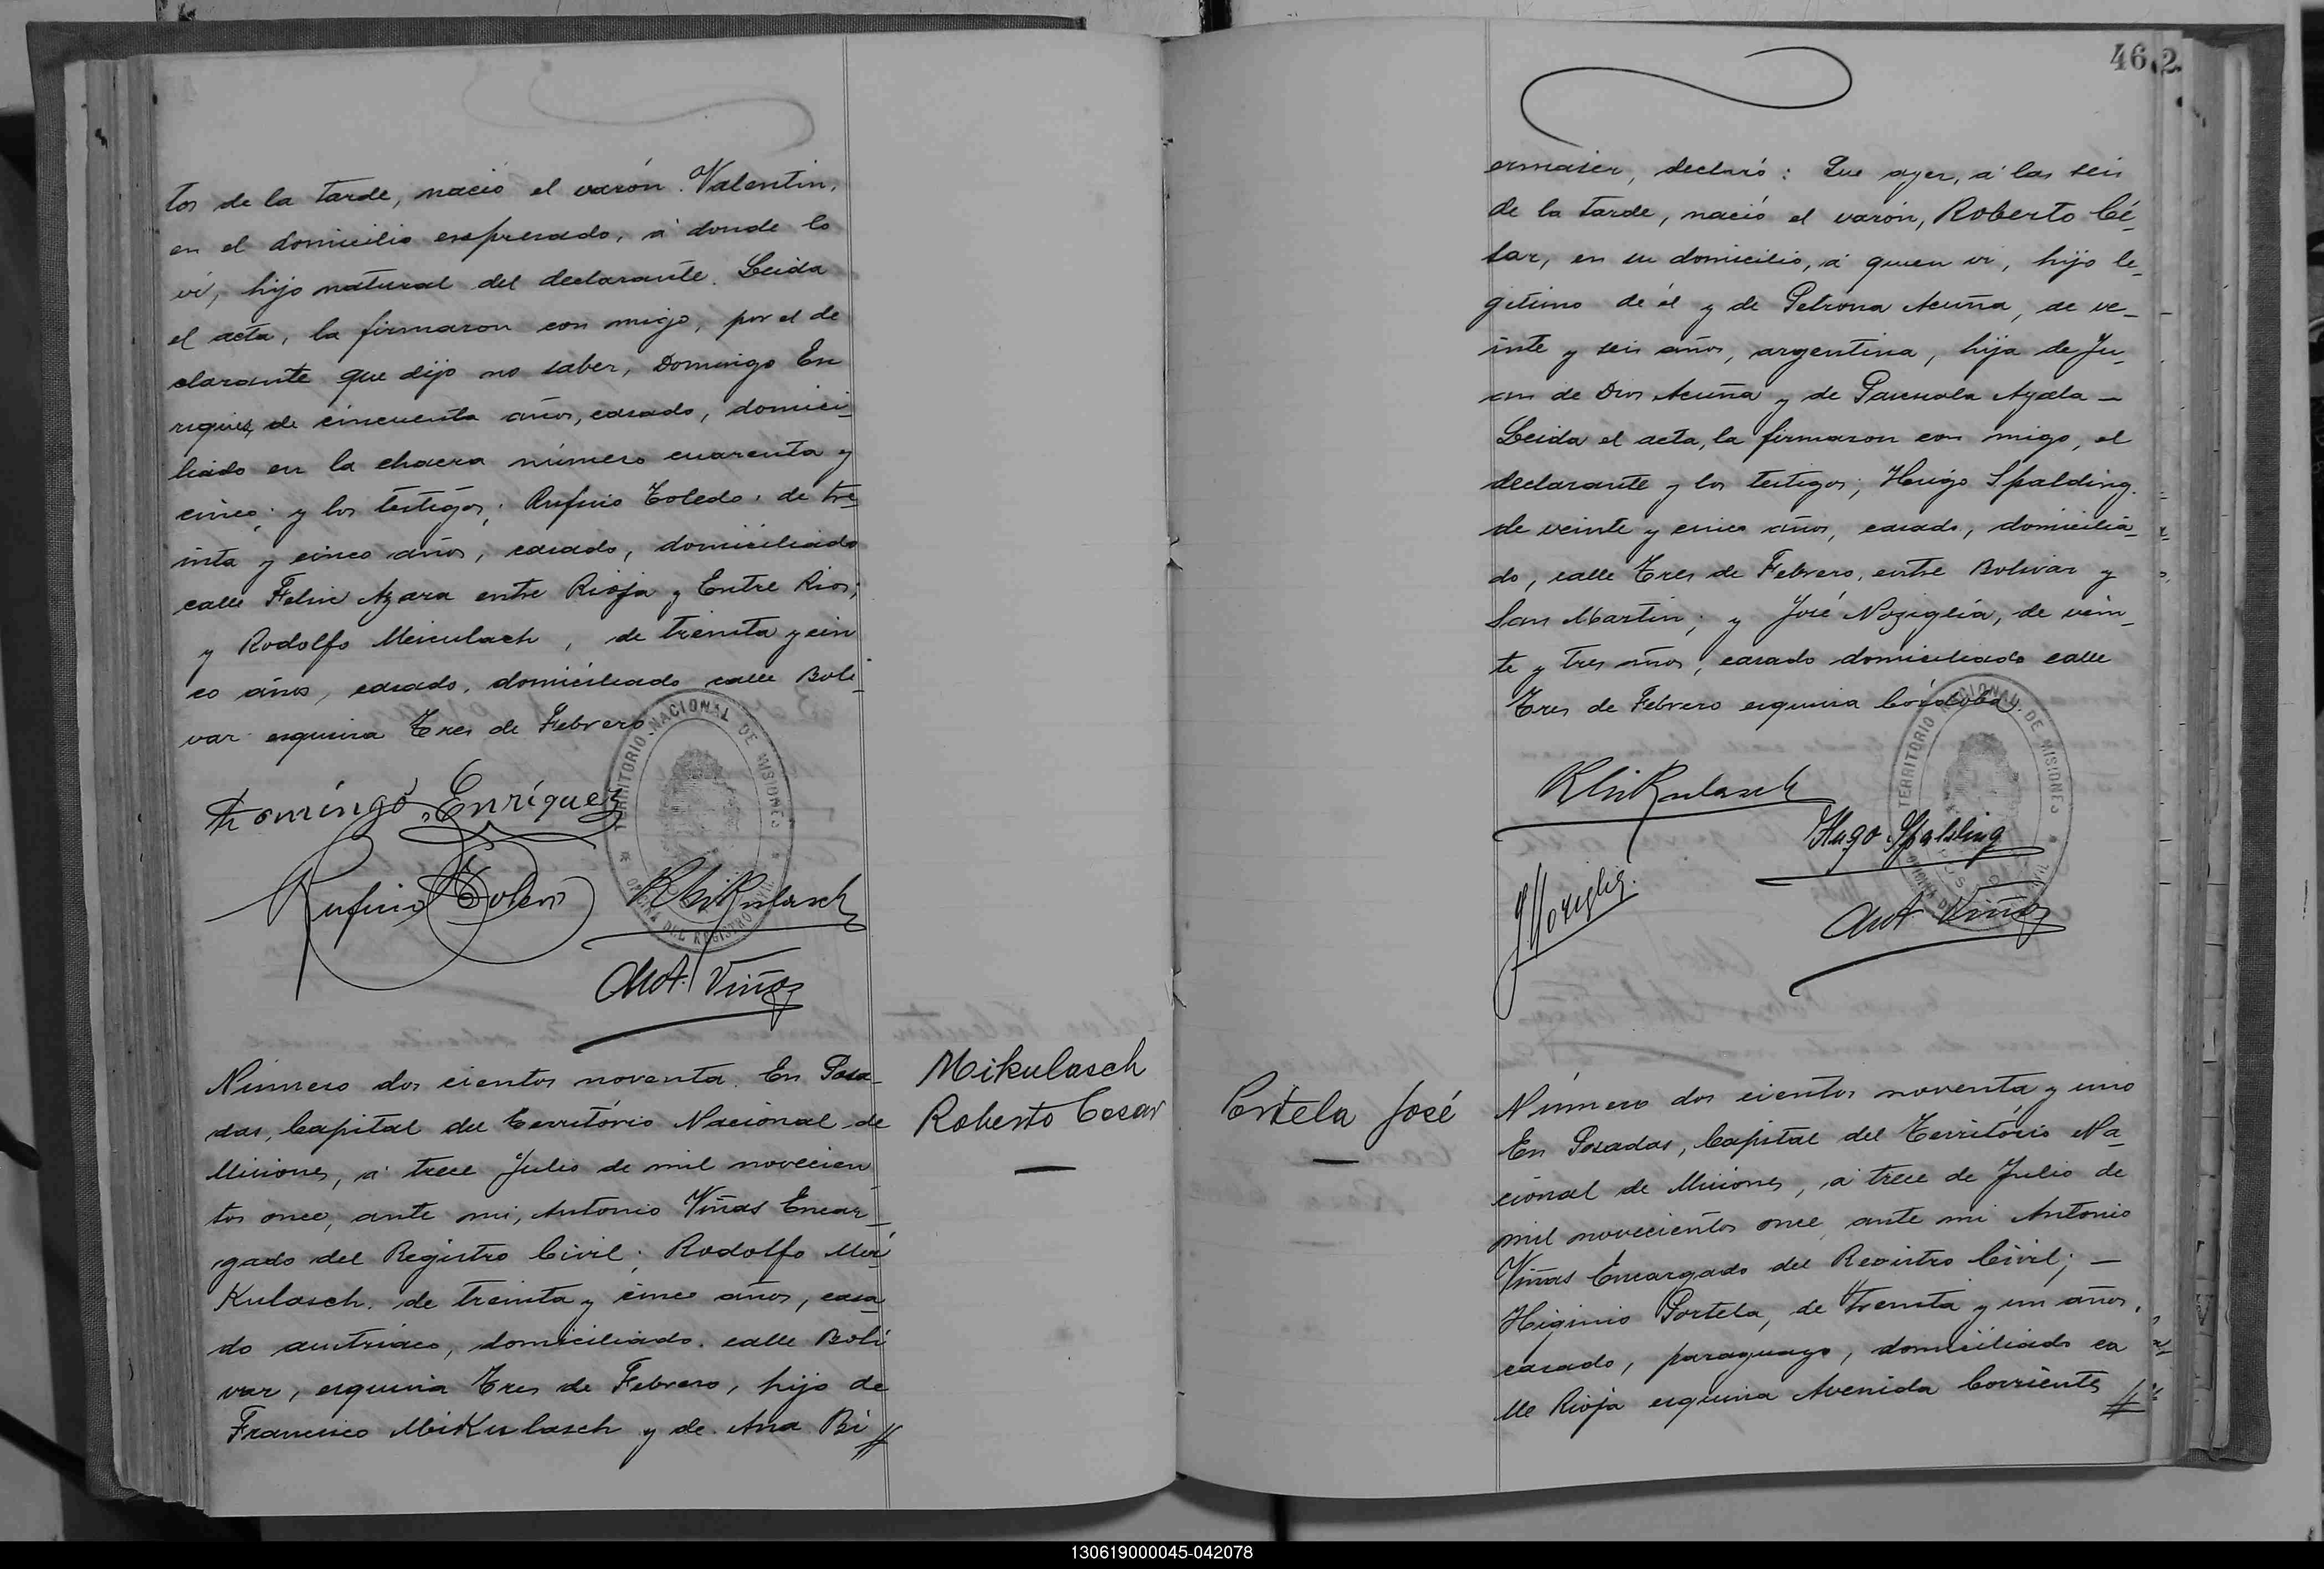 tos de la tarde, nació el varón Valentin,
en el domicilio espresado, á donde lo
ví, hijo natural del declarante. Leida
el acta, la firmaron con migo, por el de
clarante que dijo no saber, Domingo En
riquez, de cincuenta años, casado, domici_
liado en la chacra número cuarenta y
cinco; y los testigos; Rufino Toledo, de tre_
inta y cinco años, casado, domiciliado
calle Felix Azara entre Rioja y Entre Rios;
y Rodolfo Meiculach, de treinta y cin
co años, casado, domiciliado calle Boli_
var esquina Tres de Febrero
TERRITORIO NACIONAL DE MISIONES
OFICINA DEL REGISTRO CIVIL
Domingo Enríquez
Rufino Toledo
R Mikulasch
Ant. Viñas
Número dos cientos noventa. En Posa_
das, Capital del Território Nacional de
Misiones, á trece Julio de mil novecien_
tos once, ante mi, Antonio Viñas Encar_
gado del Registro Civil; Rodolfo Mei
Kulasch. de treinta y cinco años, casa_
do austriaco, domiciliado. calle Boli
var, esquina Tres de Febrero, hijo de
Francisco MiKulasch y de Ana Bi
Mikulasch
Roberto Cesar
46 2
ermaier, declaró: Que ayer, á las seis
de la tarde, nació el varón, Roberto Cé_
sar, en su domicilio, á quien vi, hijo le_
gitimo de él y de Petrona Acuña, de ve_
inte y seis años, argentina, hija de Ju_
an de Dios Acuña y de Pascuala Ayala _
Leida el acta, la firmaron con migo, el
declarante y los testigos; Hugo Spalding.
de veinte y cinco años, casado, domicilia_
do, calle Tres de Febrero, entre Bolivar y
San Martin; y José Noziglia, de vein_
te y tres años, casado domiciliado calle
Tres de Febrero esquina Córdoba.
TERRITORIO NACIONAL DE MISIONES
R Mikulasch
Hugo Spalding
J Noziglia.
Ant Viñas
Portela José
Número dos cientos noventa y uno
En Posadas, Capital del Território Na_
cional de Misiones, á trece de Julio de
mil novecientos once, ante mi Antonio
Viñas Encargado del Registro Civil; _
Higinio Portela, de treinta y un años,
casado, paraguayo, domiciliado ca
lle Rioja esquina Avenida Corrientes
130619000045-042078